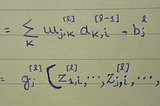 = Σ_k w_{j,k}^{[l]} a_{k,i}^{[l-1]} + b_j^{[l]}
= g_j^{[l]} ( z_{1,i}^{[l]}, ⋯, z_{j,i}^{[l]}, ⋯,